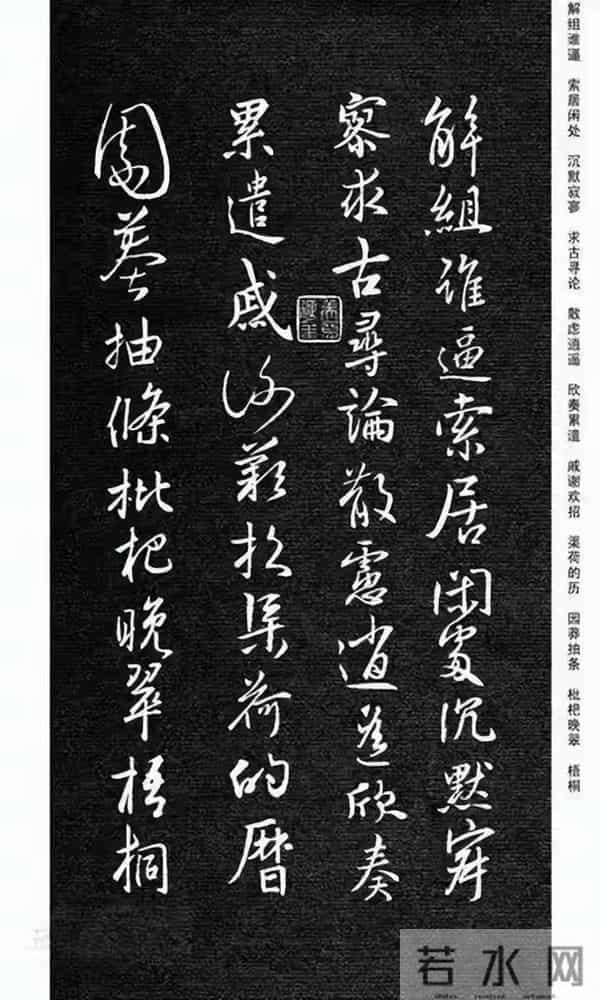 解组谁逼 索居闲处 沉默寂寥 求古寻论 散虑逍遥 欣奏累遣 戚谢欢招 渠荷的历 园莽抽条 枇杷晚翠 梧桐
解組誰逼索居閑處沉默寂
寥求古尋論散慮逍遥欣奏
累遣慼謝歡招渠荷的曆
園莽抽條枇杷晚翠梧桐
若水网